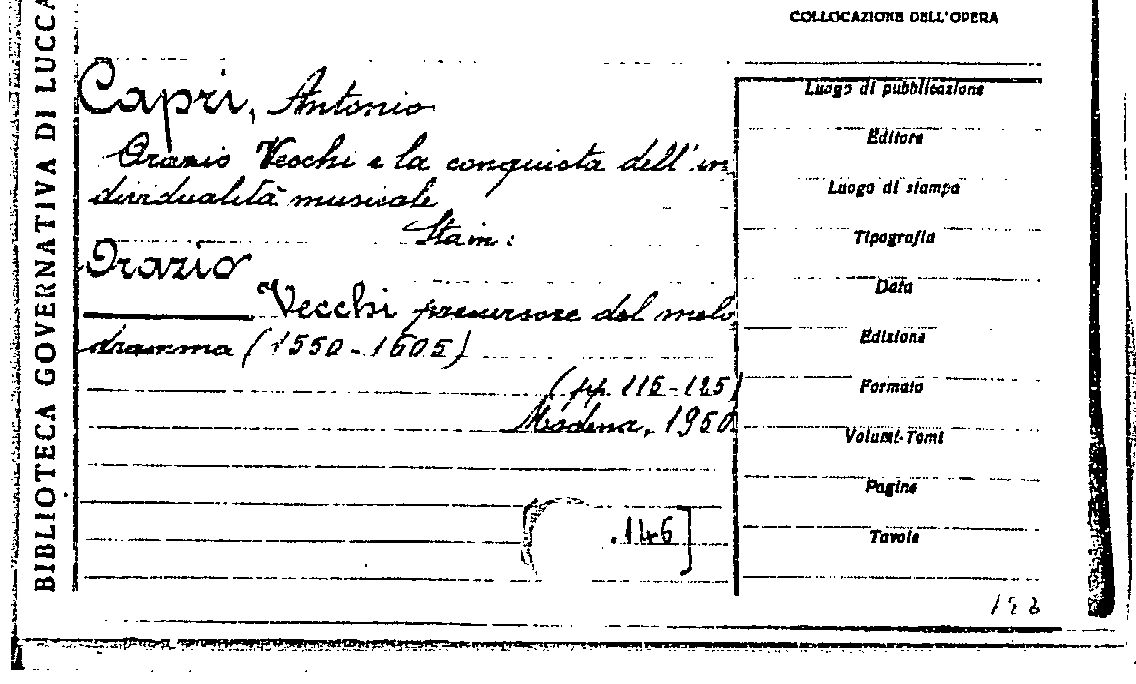 BIBLIOTECA GOVERNATIVA DI LUCCA
COLLOCAZIONE DELL'OPERA
Capri, Antonio
Orazio Vecchi e la conquista dell'in
dividualità musicale
Sta in:
Orazio
Vecchi precursore del melo
dramma (1550-1605)
(pp. 115-125)
Modena, 1950
.146]
Luogo di pubblicazione
Editore
Luogo di stampa
Tipografia
Data
Edizione
Formato
Volumi-Tomi
Pagine
Tavole